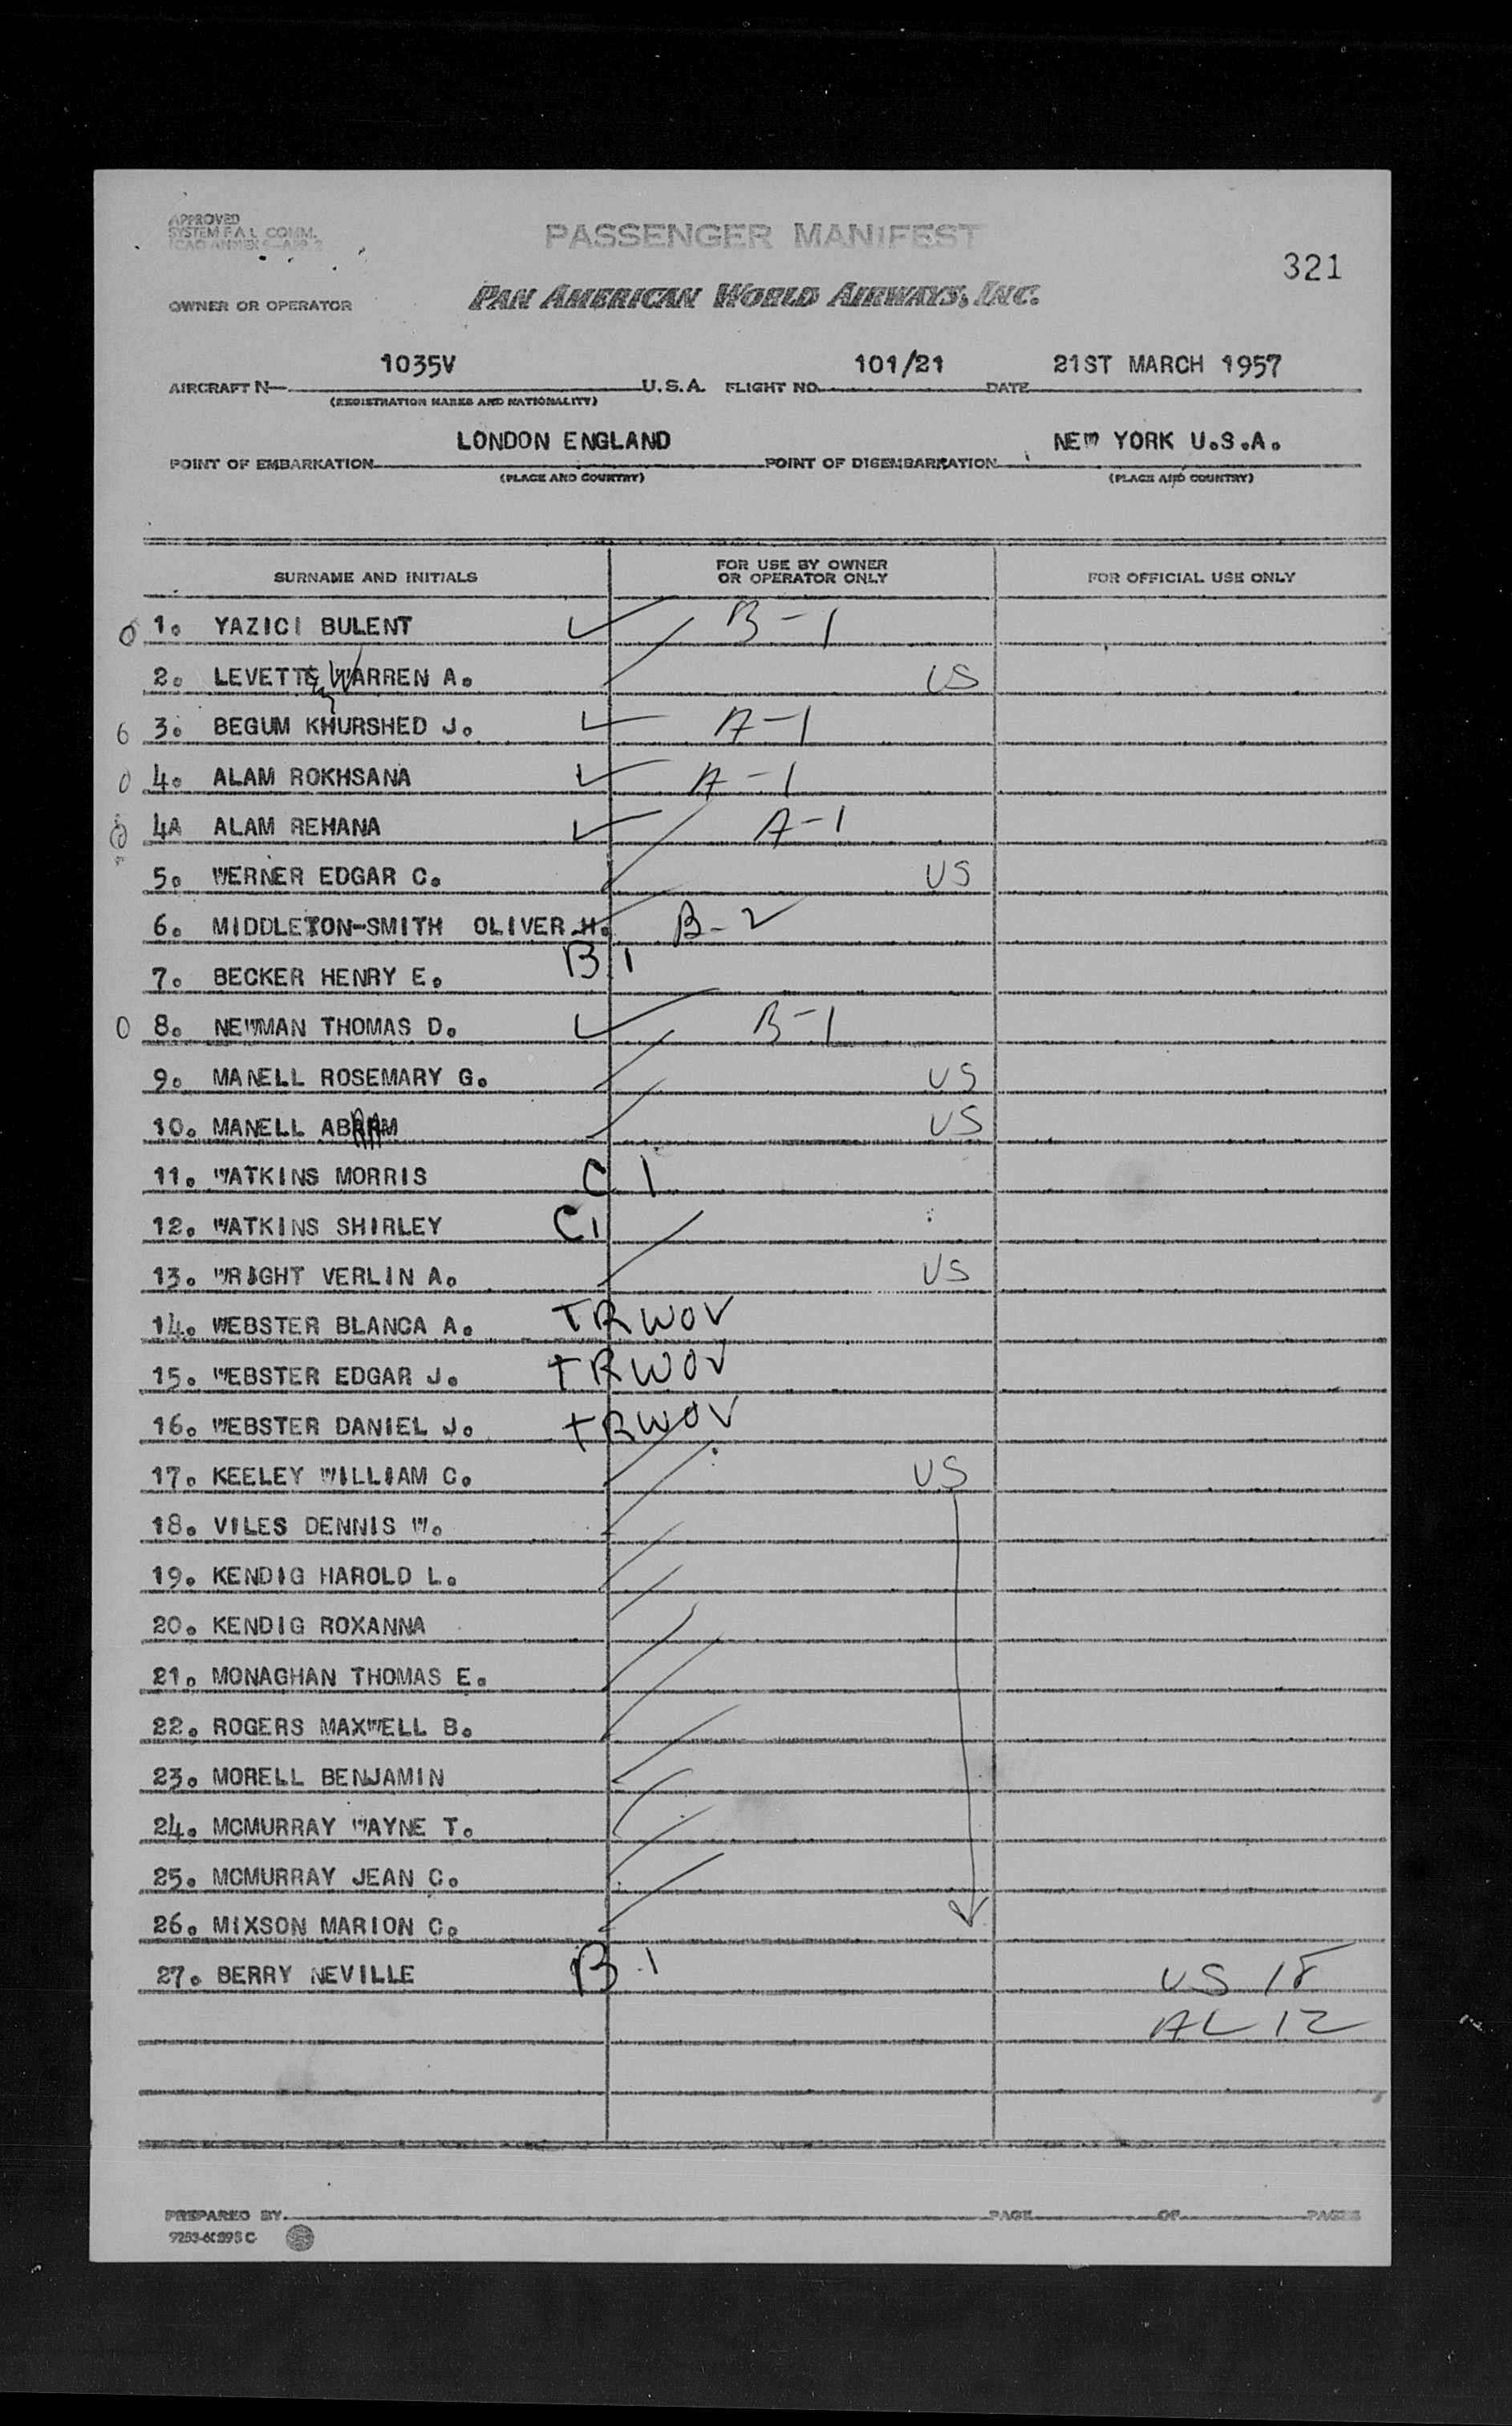 APPROVED
SYSTEM F.A.L. COMM.
ICAO ANNEX 9-APP. 2
PASSENGER MANIFEST
321
OWNER OR OPERATOR PAN AMERICAN WORLD AIRWAYS, INC.
AIRCRAFT N- 1035V U.S.A. FLIGHT NO. 101/21 DATE 21ST MARCH 1957
(REGISTRATION MARKS AND NATIONALITY)
POINT OF EMBARKATION LONDON ENGLAND POINT OF DISEMBARKATION NEW YORK U.S.A.
(PLACE AND COUNTRY) (PLACE AND COUNTRY)
SURNAME AND INITIALS FOR USE BY OWNER OR OPERATOR ONLY FOR OFFICIAL USE ONLY
0 1. YAZICI BULENT B-1
2. LEVETTE WARREN A. US
6 3. BEGUM KHURSHED J. A-1
0 4. ALAM ROKHSANA A-1
4A ALAM REHANA A-1
5. WERNER EDGAR C. US
6. MIDDLETON-SMITH OLIVER H. B-2
7. BECKER HENRY E. B 1
0 8. NEWMAN THOMAS D. B-1
9. MANELL ROSEMARY G. US
10. MANELL ABRAM US
11. WATKINS MORRIS C 1
12. WATKINS SHIRLEY C1
13. WRIGHT VERLIN A. US
14. WEBSTER BLANCA A. TRWOV
15. WEBSTER EDGAR J. TRWOV
16. WEBSTER DANIEL J. TRWOV
17. KEELEY WILLIAM C. US
18. VILES DENNIS W.
19. KENDIG HAROLD L.
20. KENDIG ROXANNA
21. MONAGHAN THOMAS E.
22. ROGERS MAXWELL B.
23. MORELL BENJAMIN
24. MCMURRAY WAYNE T.
25. MCMURRAY JEAN C.
26. MIXSON MARION C.
27. BERRY NEVILLE B-1 US 18
AL 12
PREPARED BY PAGE OF PAGES